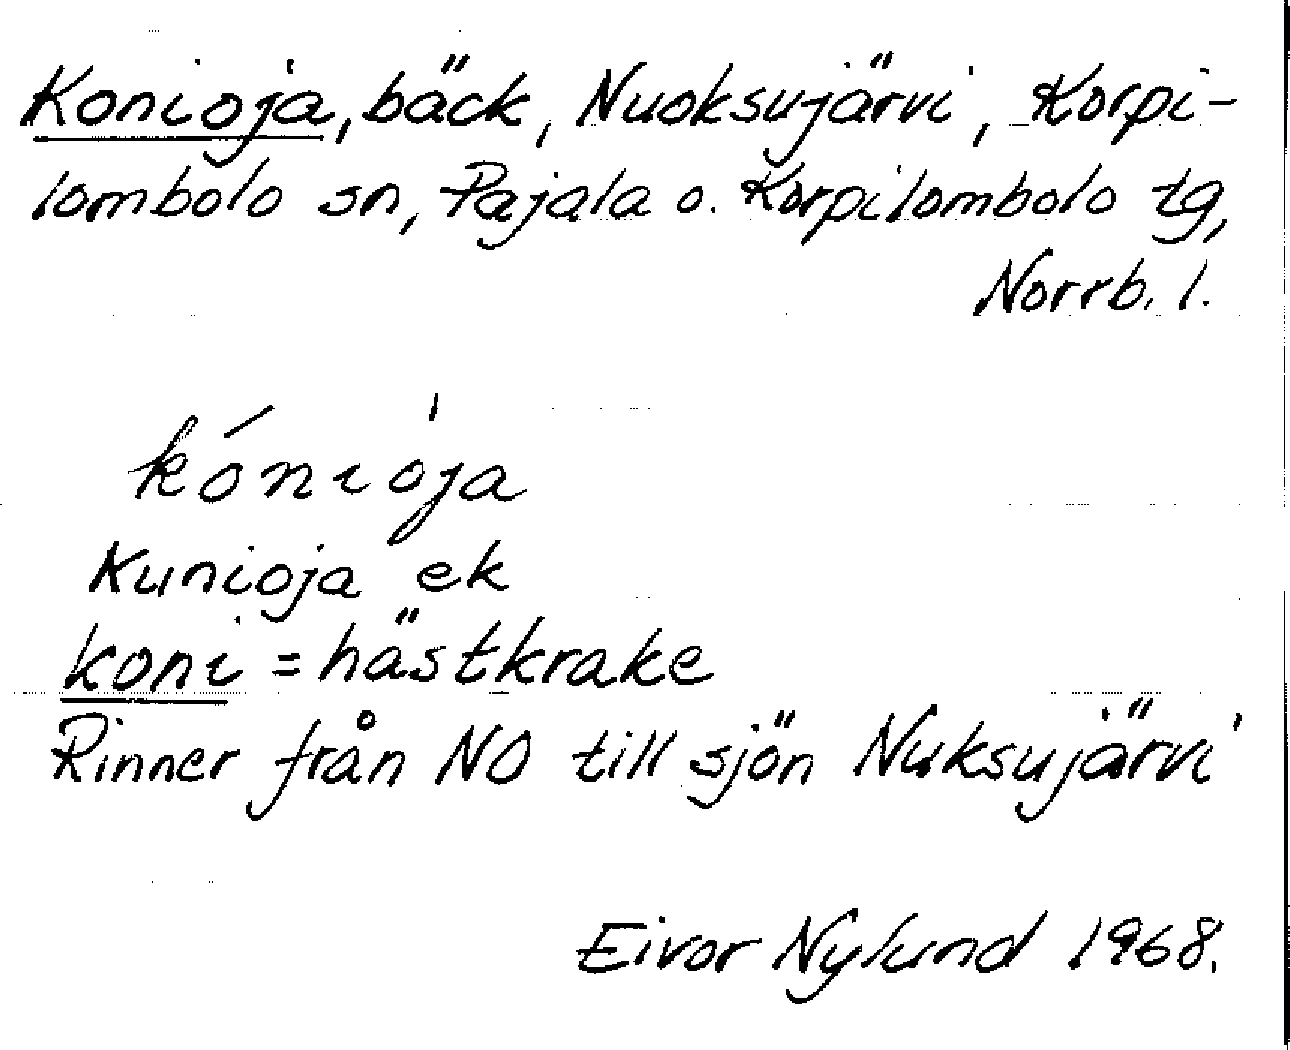 Konioja, bäck, Nuoksujärvi, Korpi-
lombolo sn, Pajala o. Korpilombolo tg,
Norrb. l.
kónιòja
Kunioja ek
koni = hästkrake
Rinner från NO till sjön Nuksujärvi
Eivor Nylund 1968.